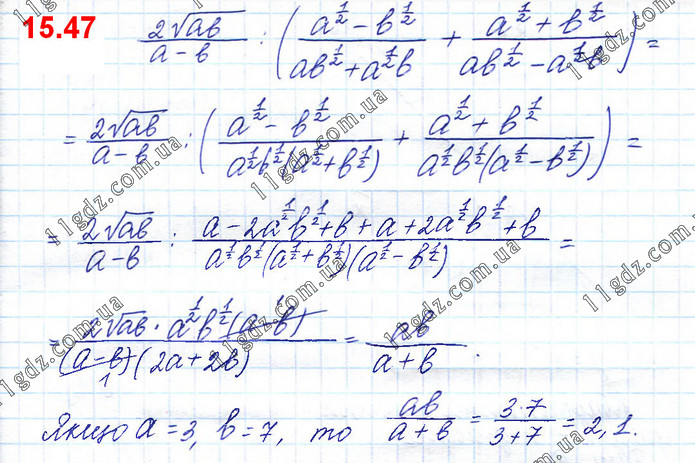 15.47 2√ab / (a - b) : ( (a^{1/2} - b^{1/2}) / (ab^{1/2} + a^{1/2}b) + (a^{1/2} + b^{1/2}) / (ab^{1/2} - a^{1/2}b) ) =
= 2√ab / (a - b) : ( (a^{1/2} - b^{1/2}) / (a^{1/2}b^{1/2}(a^{1/2} + b^{1/2})) + (a^{1/2} + b^{1/2}) / (a^{1/2}b^{1/2}(a^{1/2} - b^{1/2})) ) =
= 2√ab / (a - b) : (a - 2a^{1/2}b^{1/2} + b + a + 2a^{1/2}b^{1/2} + b) / (a^{1/2}b^{1/2}(a^{1/2} + b^{1/2})(a^{1/2} - b^{1/2})) =
= 2√ab · a^{1/2}b^{1/2}(a - b) / ((a - b)(2a + 2b)) = ab / (a + b).
Якщо a = 3, b = 7, то ab / (a + b) = 3·7 / (3 + 7) = 2,1.
11gdz.com.ua